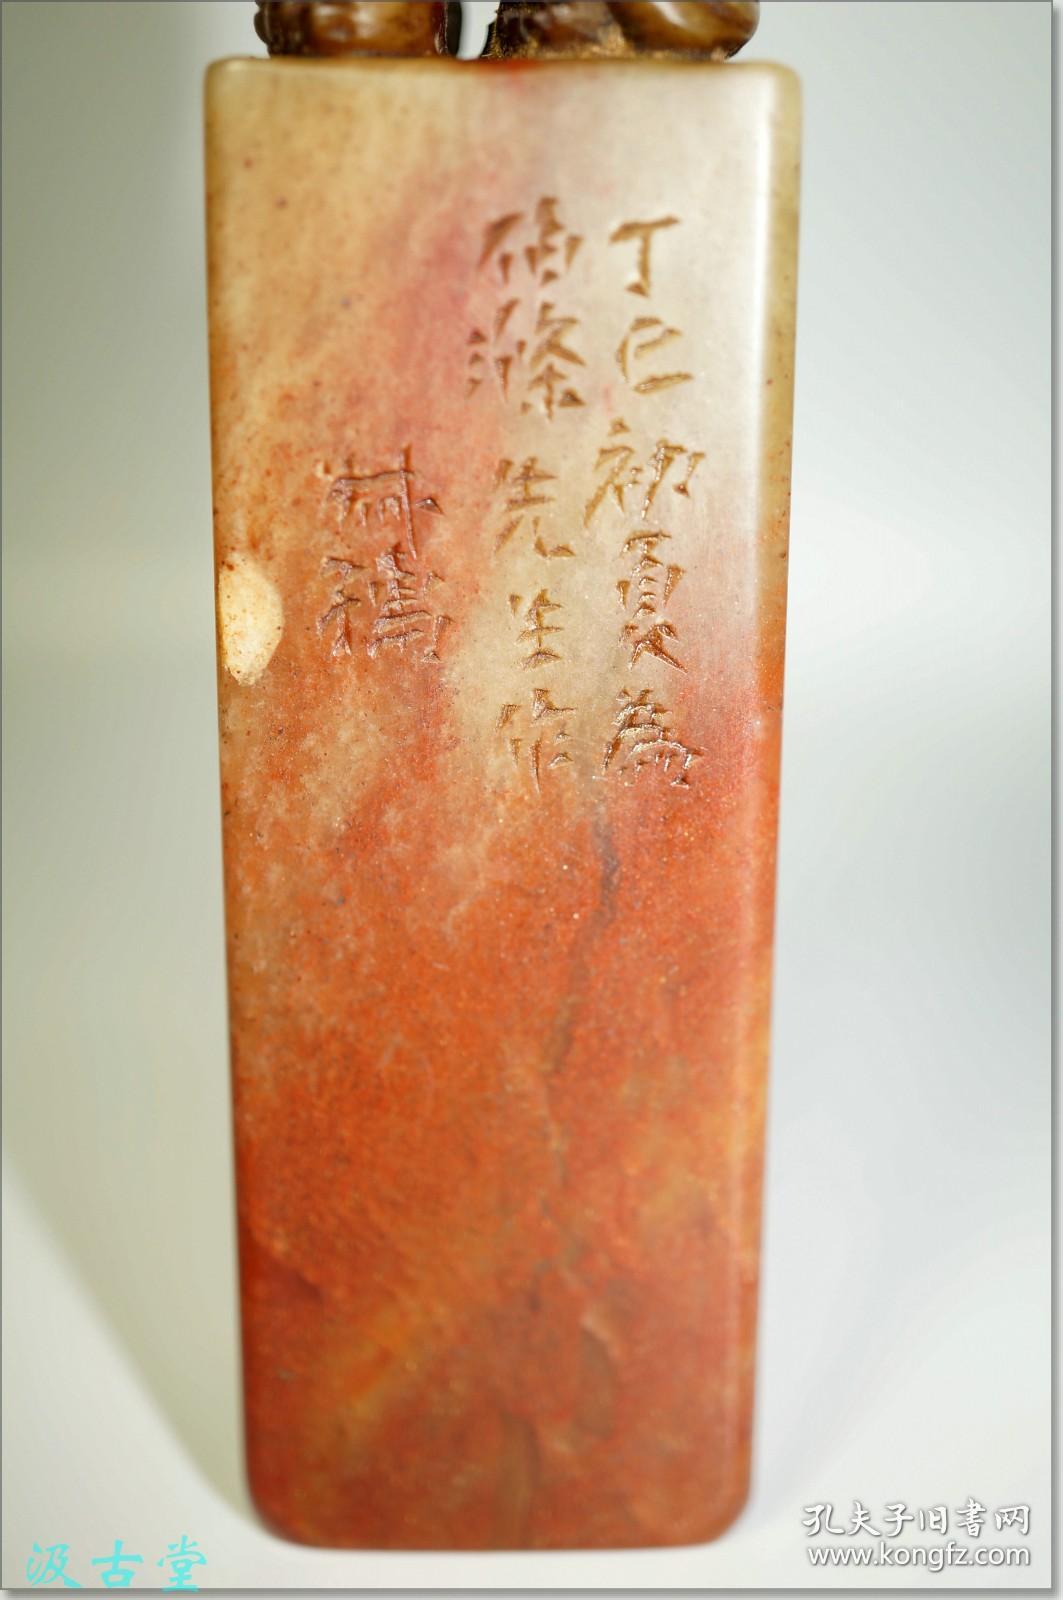 丁巳初夏為
硕滌先生作
林鶴
汲古堂
孔夫子旧書网
www.kongfz.com